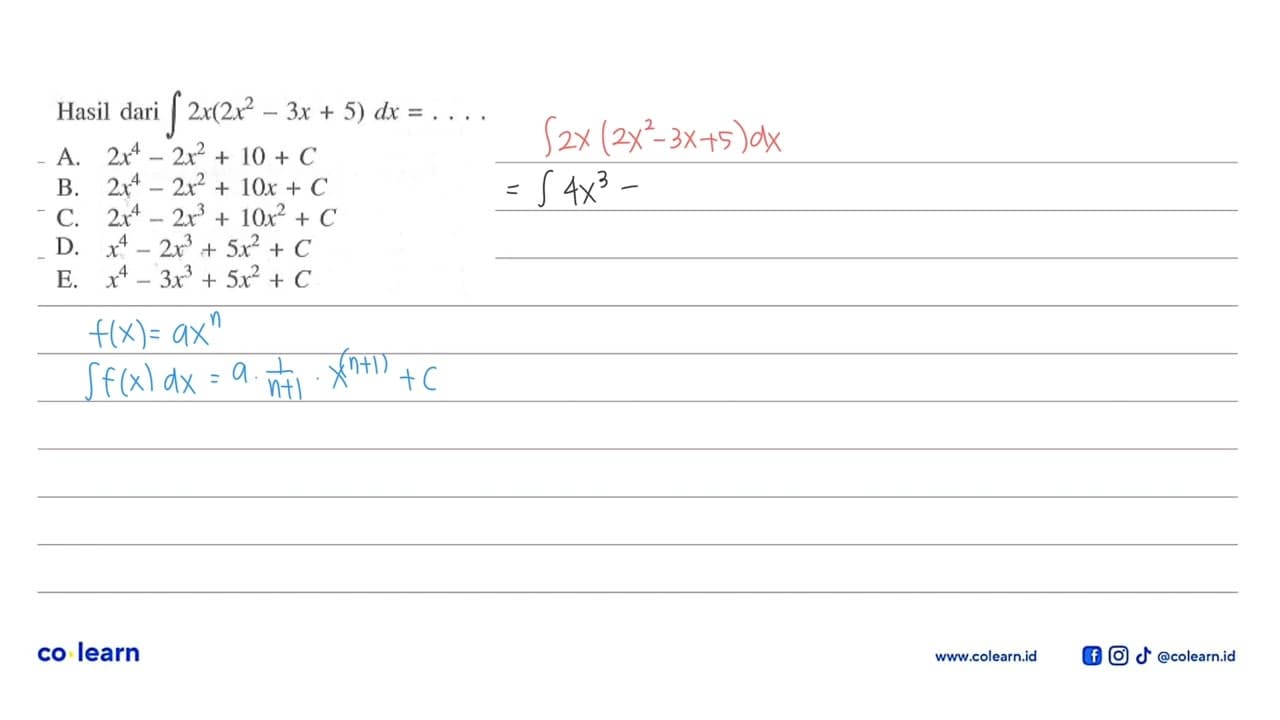 Hasil dari ∫ 2x(2x² – 3x + 5) dx = . . . .
A. 2x⁴ – 2x² + 10 + C
B. 2x⁴ – 2x² + 10x + C
C. 2x⁴ – 2x³ + 10x² + C
D. x⁴ – 2x³ + 5x² + C
E. x⁴ – 3x³ + 5x² + C
f(x) = axⁿ
∫f(x) dx = a · 1/(n+1) · x^(n+1) + C
∫2x (2x²-3x+5)dx
= ∫ 4x³ –
co learn
www.colearn.id
@colearn.id